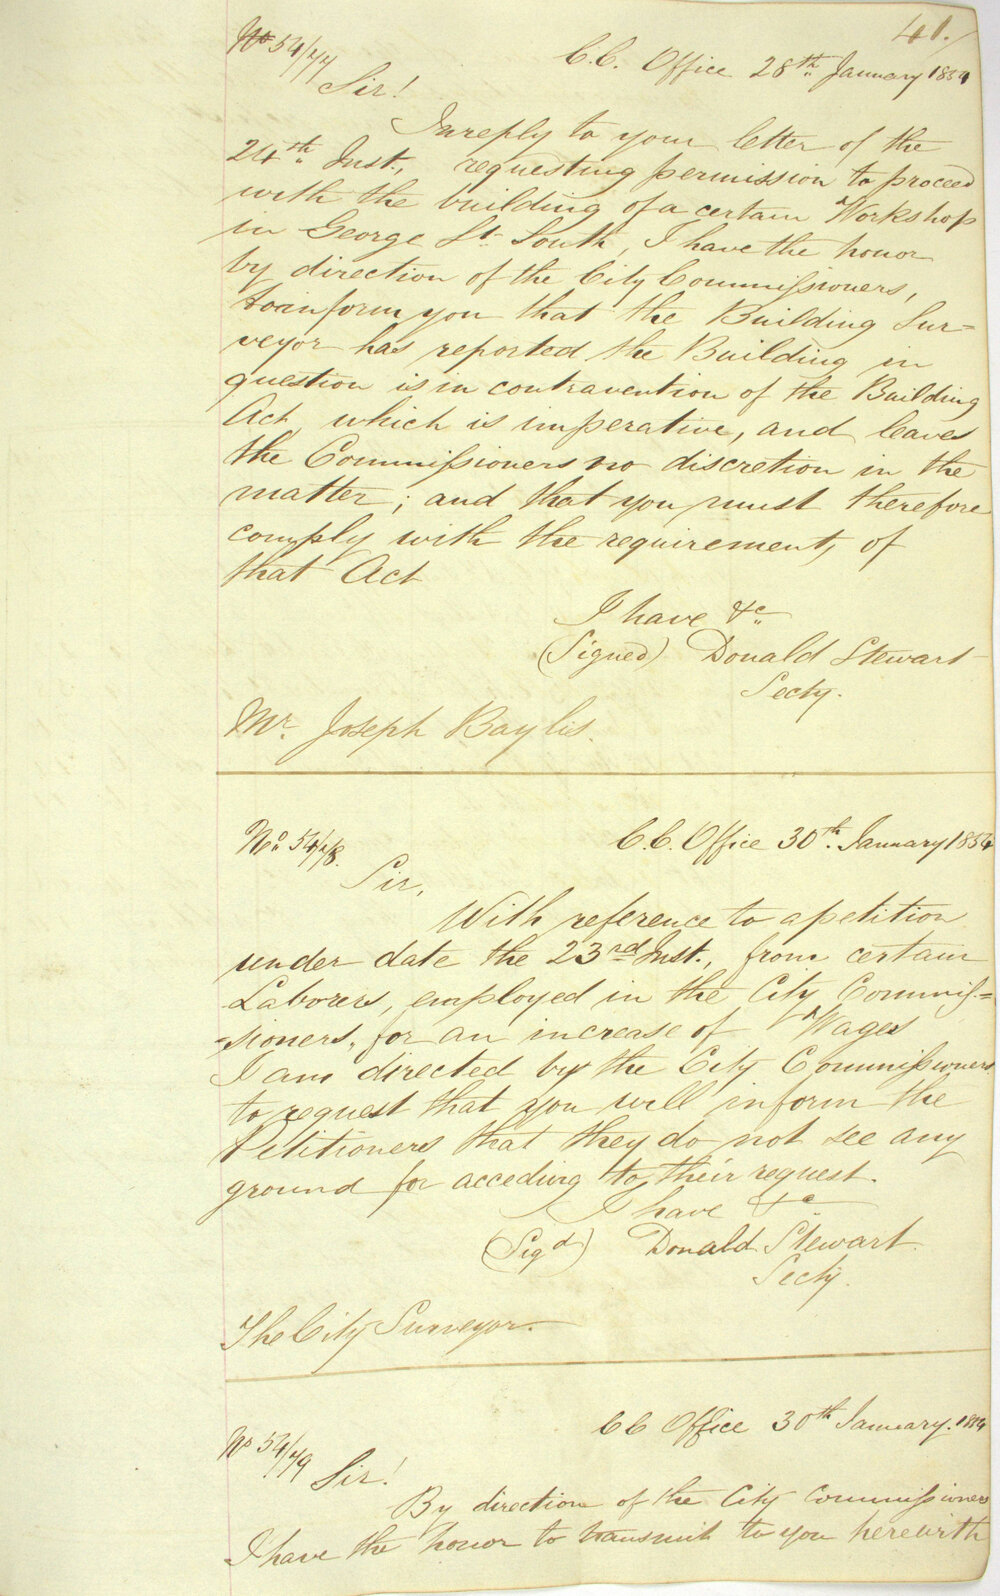 41.
No 54/77
C.C. Office 28th January 1854
Sir!
In reply to your letter of the
24th Inst., requesting permission to proceed
with the building of a certain Workshop
in George St South, I have the honor
by direction of the City Commissioners,
to inform you that the Building Sur=
veyor has reported the Building in
question is in contravention of the Building
Act, which is imperative, and leaves
the Commissioners no discretion in the
matter; and that you must therefore
comply with the requirements of
that Act
I have &c
(Signed) Donald Stewart
Secty.
Mr. Joseph Baylis.
No 54/78.
C.C. Office 30th. January 1854
Sir,
With reference to a petition
under date the 23rd Inst., from certain
Laborers, employed in the City Commis=
=sioners, for an increase of Wages
I am directed by the City Commissioners
to request that you will inform the
Petitioners that they do not see any
ground for acceding to their request.
I have &c
(Sigd) Donald Stewart.
Secty.
The City Surveyor.
No 54/79
CC Office 30th January. 1854
Sir!
By direction of the City Commissioners
I have the honor to transmit to you herewith